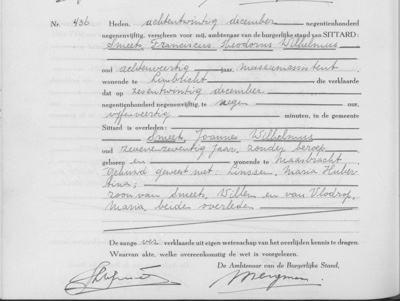 Nr. 436 Heden, achtentwintig december negentienhonderd
negenenvijftig, verscheen voor mij, ambtenaar van de burgerlijke stand van SITTARD:
Smeets, Franciscus Theodorus Wilhelmus
oud achtenveertig jaar, museumassistent
wonende te Limbricht die verklaarde
dat op zesentwintig december
negentienhonderd negenenvijftig, te negen uur,
vijfenveertig minuten, in de gemeente
Sittard is overleden:
Smeets, Joannes Wilhelmus
oud zevenenzeventig jaar, zonder beroep,
geboren en wonende te Maasbracht
gehuwd geweest met: Linssen, Maria Huber-
tina;
zoon van Smeets, Willem en van Vlodrop,
Maria, beiden overleden
De aangever verklaarde uit eigen wetenschap van het overlijden kennis te dragen.
Waarvan akte, welke overeenkomstig de wet is voorgelezen.
De Ambtenaar van de Burgerlijke Stand,